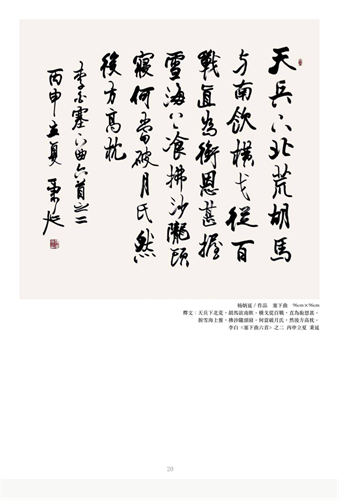 天兵下北荒胡馬
欲南飲橫戈從百
戰直為銜恩甚握
雪海上飡拂沙隴頭
寢何當破月氏然
後方高枕
李白塞下曲六首之二
丙申立夏 秉延
楊炳延/作品 塞下曲 96cm×96cm
釋文:天兵下北荒,胡馬欲南飲。橫戈從百戰,直為銜恩甚。
握雪海上餐,拂沙隴頭寢。何當破月氏,然後方高枕。
李白《塞下曲六首》之二 丙申立夏 秉延
20